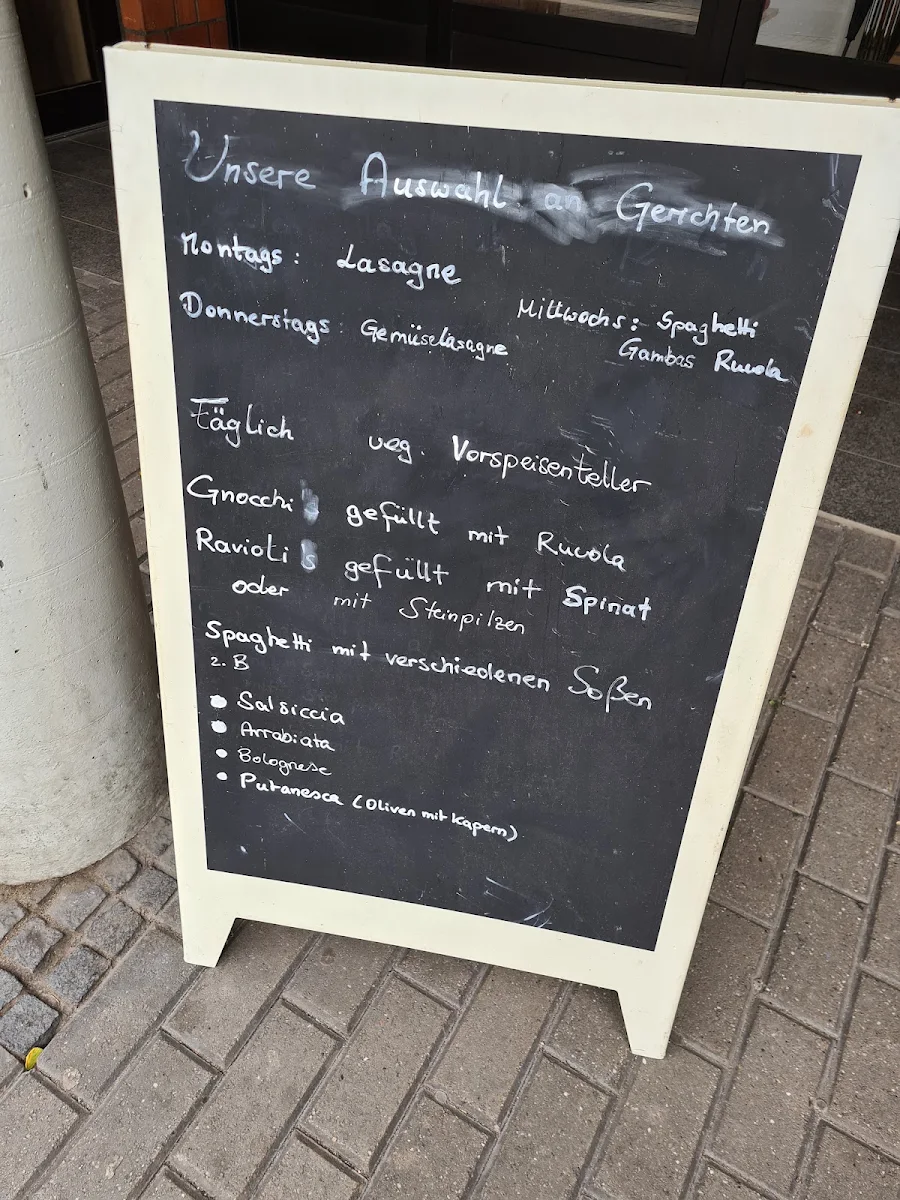 Unsere Auswahl an Gerichten
Montags: Lasagne
Mittwochs: Spaghetti
Gambas Rucola
Donnerstags: Gemüselasagne
Täglich veg. Vorspeisenteller
Gnocchi gefüllt mit Rucola
Ravioli gefüllt mit Spinat
oder mit Steinpilzen
Spaghetti mit verschiedenen Soßen
z. B
• Salsiccia
• Arrabiata
• Bolognese
• Putanesca (Oliven mit Kapern)